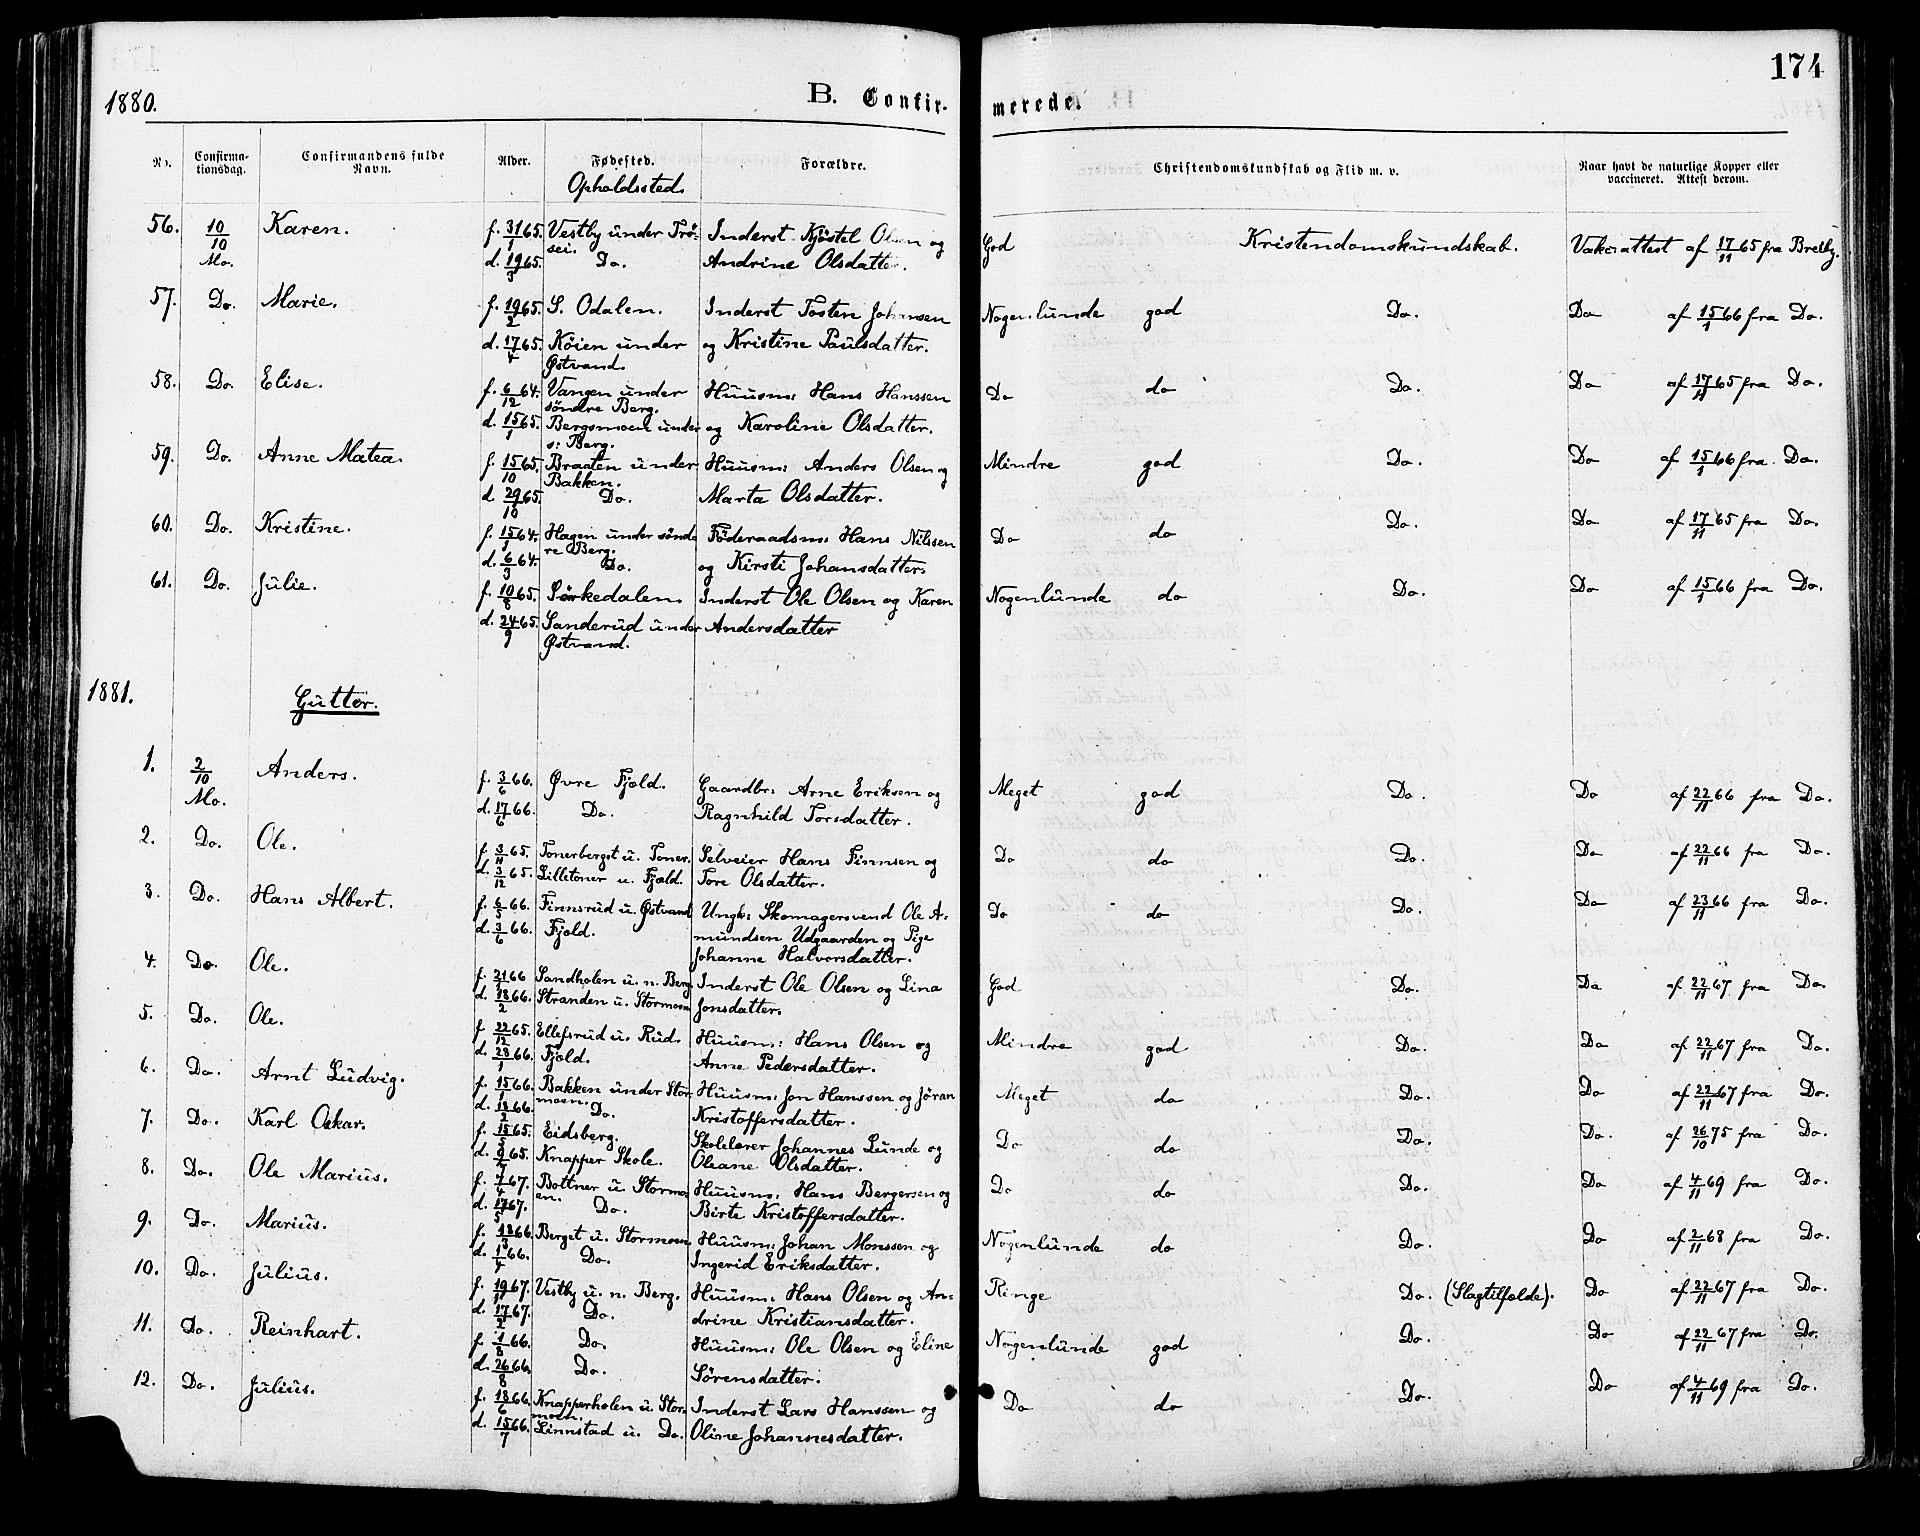 174
1880.
B. Confir-
merede.
No.
Confirma-
tionsdag.
Confirmandens fulde
Navn.
Alder.
Fødested.
Opholdssted.
Forældre.
Christendomskundskab og Flid m. v.
Naar havt de naturlige Kopper eller
vaccineret. Attest derom.
56. 10/10 Mo. Karen. f. 31/1 65. Vestby under Trö- Inderst Kjöstel Olsen og God Kristendomskundskab. Vakc: attest af 17/11 65 fra Breiby.
sei.
d. 19/3 65. Do. Andrine Olsdatter.
57. Do. Marie. f. 19/2 65. S. Odalen. Inderst Tosten Johansen Nogenlunde god Do. Do af 15/1 66 fra Do.
d. 17/4 65. Köien under og Kristine Paulsdatter.
Østvand.
58. Do. Elise. f. 6/12 64. Vangen under Huusm: Hans Hanssen Do do Do. Do af 17/11 65 fra Do.
söndre Berg.
d. 15/1 65. Bergsmoen under og Karoline Olsdatter.
s: Berg.
59. Do. Anne Matea. f. 15/10 65. Braaten under Huusm: Anders Olsen og Mindre god Do. Do af 15/1 66 fra Do.
Bakken.
d. 29/10 65. Do. Marta Olsdatter.
60. Do. Kristine. f. 15/1 64. Hagen under sönd- Föderaadsm: Hans Nilssen Do do Do. Do af 17/11 65 fra Do.
re Berg.
d. 6/3 64. Do. og Kirsti Johansdatter.
61. Do. Julie. f. 10/8 65. Sörkedalen. Inderst Ole Olsen og Karen Nogenlunde do Do. Do af 15/1 66 fra Do.
d. 24/9 65. Sanderud under Andersdatter
Østvand.
1881. Gutter.
1. 2/10 Mo. Anders. f. 3/6 66. Øvre Fjeld. Gaardbr: Arne Eriksen og Meget god Do. Do af 22/11 66 fra Do.
d. 17/6 66. Do. Ragnhild Torsdatter.
2. Do. Ole. f. 3/11 65. Tonerberget u. Toner. Selveier Hans Finnsen og Do do Do. Do af 22/11 66 fra Do.
d. 3/12 65. Lilletoner u. Fjeld. Tore Olsdatter.
3. Do. Hans Albert. f. 6/5 66. Finnsrud u. Østvand Ungk: Skomagersvend Ole A- Do do Do. Do af 23/11 66 fra Do.
d. 3/6 66. Fjeld. mundsen Udgaarden og Pige
Johanne Halvorsdatter.
4. Do. Ole. f. 21/1 66 Sandholen u. n. Berg. Inderst Ole Olsen og Lina God Do. Do af 22/11 67 fra Do.
d. 18/2 66. Stranden u. Stormoen Jonsdatter.
5. Do. Ole. f. 22/12 65. Ellefsrud u. Rud. Huusm: Hans Olsen og Mindre god Do. Do af 22/11 67 fra Do.
d. 28/1 66. Fjeld. Anne Pedersdatter.
6. Do. Arnt Ludvig. f. 15/1 66. Bakken under Stor- Huusm: Jon Hanssen og Jöran Meget do Do. Do af 22/11 67 fra Do.
moen.
d. 18/2 66. Do. Kristoffersdatter.
7. Do. Karl Oskar. f. 15/5 65. Eidsberg. Skolelærer Johannes Lunde og Do do Do. Do. af 26/10 75 fra Do.
d. 9/7 65. Knapper Skole. Oleane Olsdatter.
8. Do. Ole Marius. f. 7/4 67. Bottner u. Stormo- Huusm: Hans Bergersen og Do do Do. Do af 4/11 69 fra Do.
en.
d. 17/5 67. Do. Birte Kristoffersdatter.
9. Do. Marius. f. 13/3 66. Berget u. Stormoen Huusm: Johan Monssen og Nogenlunde do Do. Do af 2/11 68 fra Do.
d. 1/4 66. Do. Ingerid Eriksdatter.
10. Do. Julius. f. 19/1 67. Vestby u. n. Berg. Huusm: Hans Olsen og An- Ringe Do. (Slagtilfælde). Do af 22/11 67 fra Do.
d. 17/2 67. Do. drine Kristiansdatter.
11. Do. Reinhart. f. 1/8 66. Do. Huusm: Ole Olsen og Eline Nogenlunde god Do. Do af 22/11 67 fra Do.
d. 26/8 66. Do. Sörensdatter.
12. Do. Julius. f. 18/6 66. Knapperholen u. Stor- Inderst Lars Hanssen og Do do Do. Do af 4/11 69 fra Do.
moen.
d. 15/7 66. Linnstad u. Do. Oline Johannesdatter.